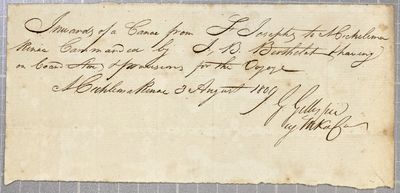 Inwards of a Canoe from St Josephs to Michilima
kinac Commanded by J. B. Berthelot having
on board Stores & provisions for the Voyage
Michilimakinac 3 August 1809
G Gillespie